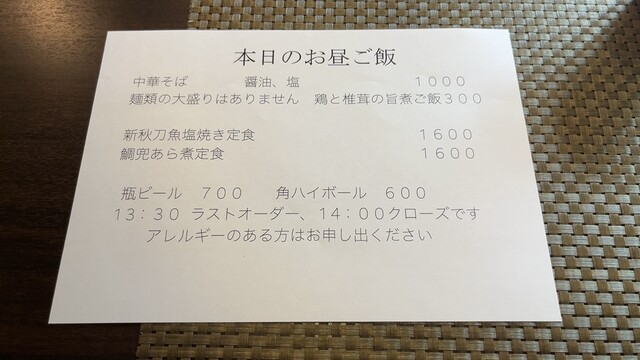 本日のお昼ご飯
中華そば 醤油、塩 １０００
麺類の大盛りはありません 鶏と椎茸の旨煮ご飯３００
新秋刀魚塩焼き定食 １６００
鯛兜あら煮定食 １６００
瓶ビール ７００ 角ハイボール ６００
１３：３０ ラストオーダー、１４：００クローズです
アレルギーのある方はお申し出ください